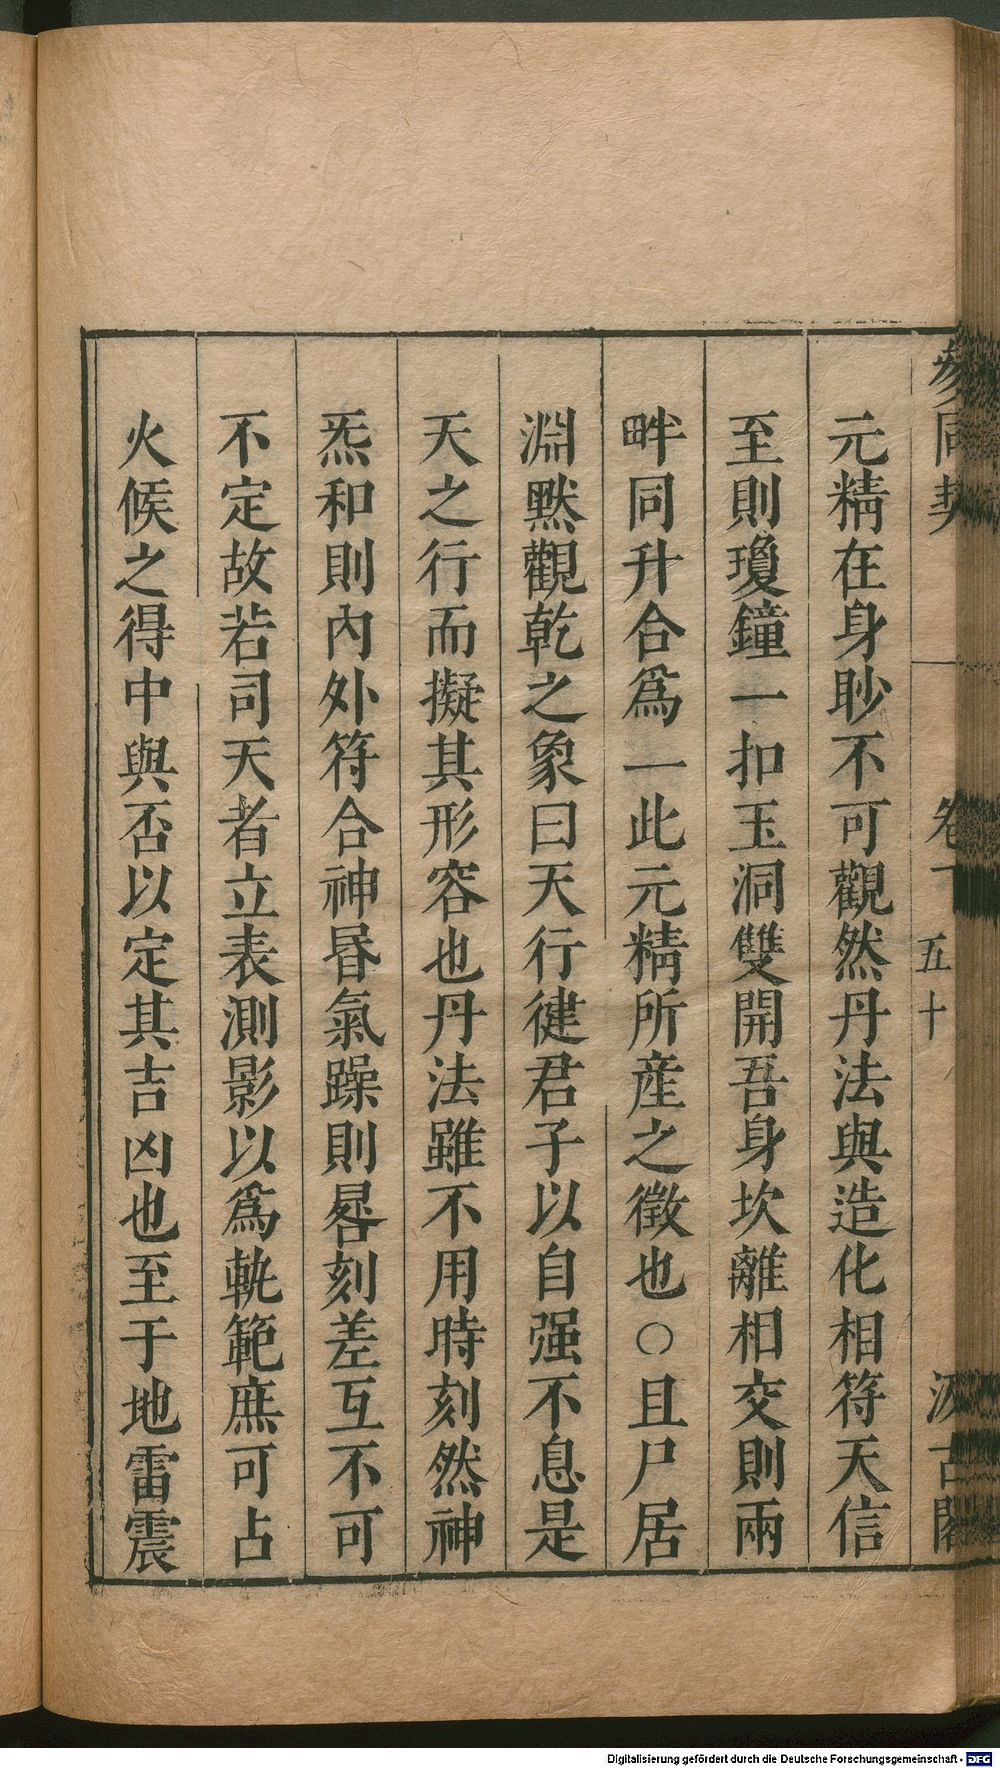 參同契
卷一
五十
汲古閣
元精在身眇不可觀然丹法與造化相符天信
至則瓊鐘一扣玉洞雙開吾身坎離相交則兩
畔同升合爲一此元精所産之徵也○且尸居
淵黙觀乾之象曰天行徤君子以自强不息是
天之行而擬其形容也丹法雖不用時刻然神
炁和則內外符合神昏氣躁則晷刻差互不可
不定故若司天者立表測影以爲軌範庶可占
火候之得中與否以定其吉凶也至于地雷震
Digitalisierung gefördert durch die Deutsche Forschungsgemeinschaft - DFG